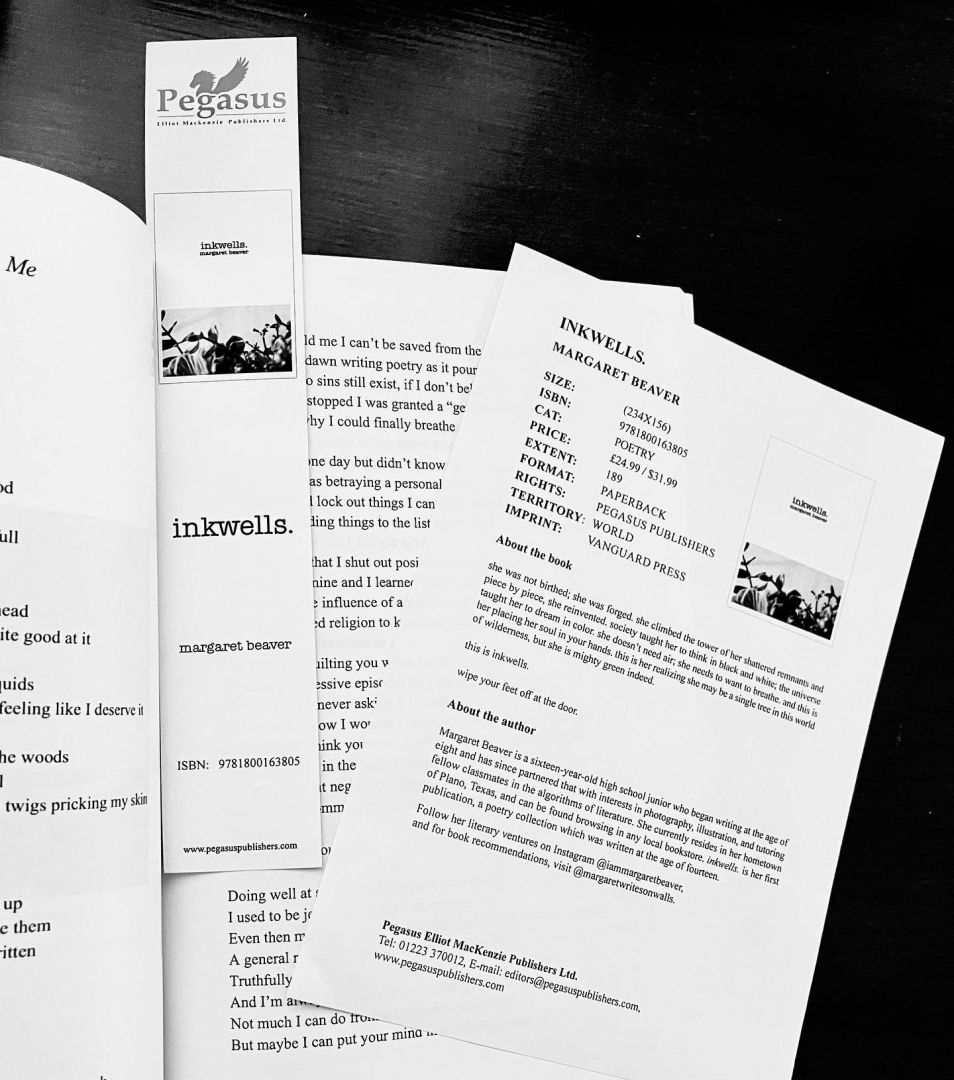 Me
od
full
head
ite good at it
quids
feeling like I deserve it
he woods
l
twigs pricking my skin
up
e them
ritten
Pegasus
Elliot MacKenzie Publishers Ltd.
inkwells.
margaret beaver
inkwells.
margaret beaver
ISBN: 9781800163805
www.pegasuspublishers.com
ld me I can't be saved from the
dawn writing poetry as it pour
o sins still exist, if I don't bel
stopped I was granted a "ge
hy I could finally breathe
one day but didn't know
as betraying a personal
l lock out things I can
ding things to the list
that I shut out posi
nine and I learned
e influence of a
ed religion to k
uilting you w
essive episo
never ask
ow I wo
ink you
in the
t neg
omm
Doing well at s
I used to be je
Even then m
A general r
Truthfully
And I'm alway
Not much I can do from
But maybe I can put your mind
INKWELLS.
MARGARET BEAVER
SIZE: (234X156)
ISBN: 9781800163805
CAT: POETRY
PRICE: £24.99 / $31.99
EXTENT: 189
FORMAT: PAPERBACK
RIGHTS: PEGASUS PUBLISHERS
TERRITORY: WORLD
IMPRINT: VANGUARD PRESS
inkwells.
margaret beaver
About the book
she was not birthed; she was forged. she climbed the tower of her shattered remnants and
piece by piece, she reinvented. society taught her to think in black and white; the universe
taught her to dream in color. she doesn't need air; she needs to want to breathe. and this is
her placing her soul in your hands. this is her realizing she may be a single tree in this world
of wilderness, but she is mighty green indeed.
this is inkwells.
wipe your feet off at the door.
About the author
Margaret Beaver is a sixteen-year-old high school junior who began writing at the age of
eight and has since partnered that with interests in photography, illustration, and tutoring
fellow classmates in the algorithms of literature. She currently resides in her hometown
of Plano, Texas, and can be found browsing in any local bookstore. inkwells. is her first
publication, a poetry collection which was written at the age of fourteen.
Follow her literary ventures on Instagram @iammargaretbeaver,
and for book recommendations, visit @margaretwritesonwalls.
Pegasus Elliot MacKenzie Publishers Ltd.
Tel: 01223 370012, E-mail: editors@pegasuspublishers.com,
www.pegasuspublishers.com